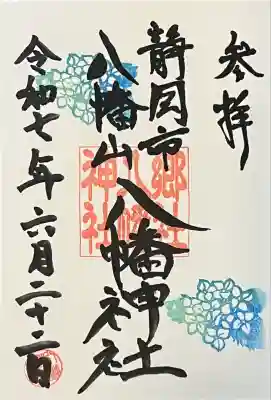 参拝
静岡市
八幡山八幡神社
郷社
八幡
神社
令和七年六月二十二日